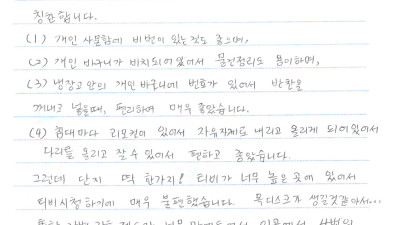 칭찬합니다.
(1) 개인 사물함에 비번이 있는것도 좋으며,
(2) 개인 바구니가 비치되어 있어서 물건정리도 용이하며,
(3) 냉장고 안의 개인 바구니에 번호가 있어서 반찬을
꺼내고 넣을때, 편리하여 매우 좋았습니다.
(4) 침대마다 리모컨이 있어서 자유자재로 내리고 올리게 되어있어서
다리를 올리고 잘수 있어서 편하고 좋았습니다.
그런데 단지 딱 한가지! 티비가 너무 높은 곳에 있어서
티비시청하기에 매우 불편했습니다. 목디스크가 생길것같아서...